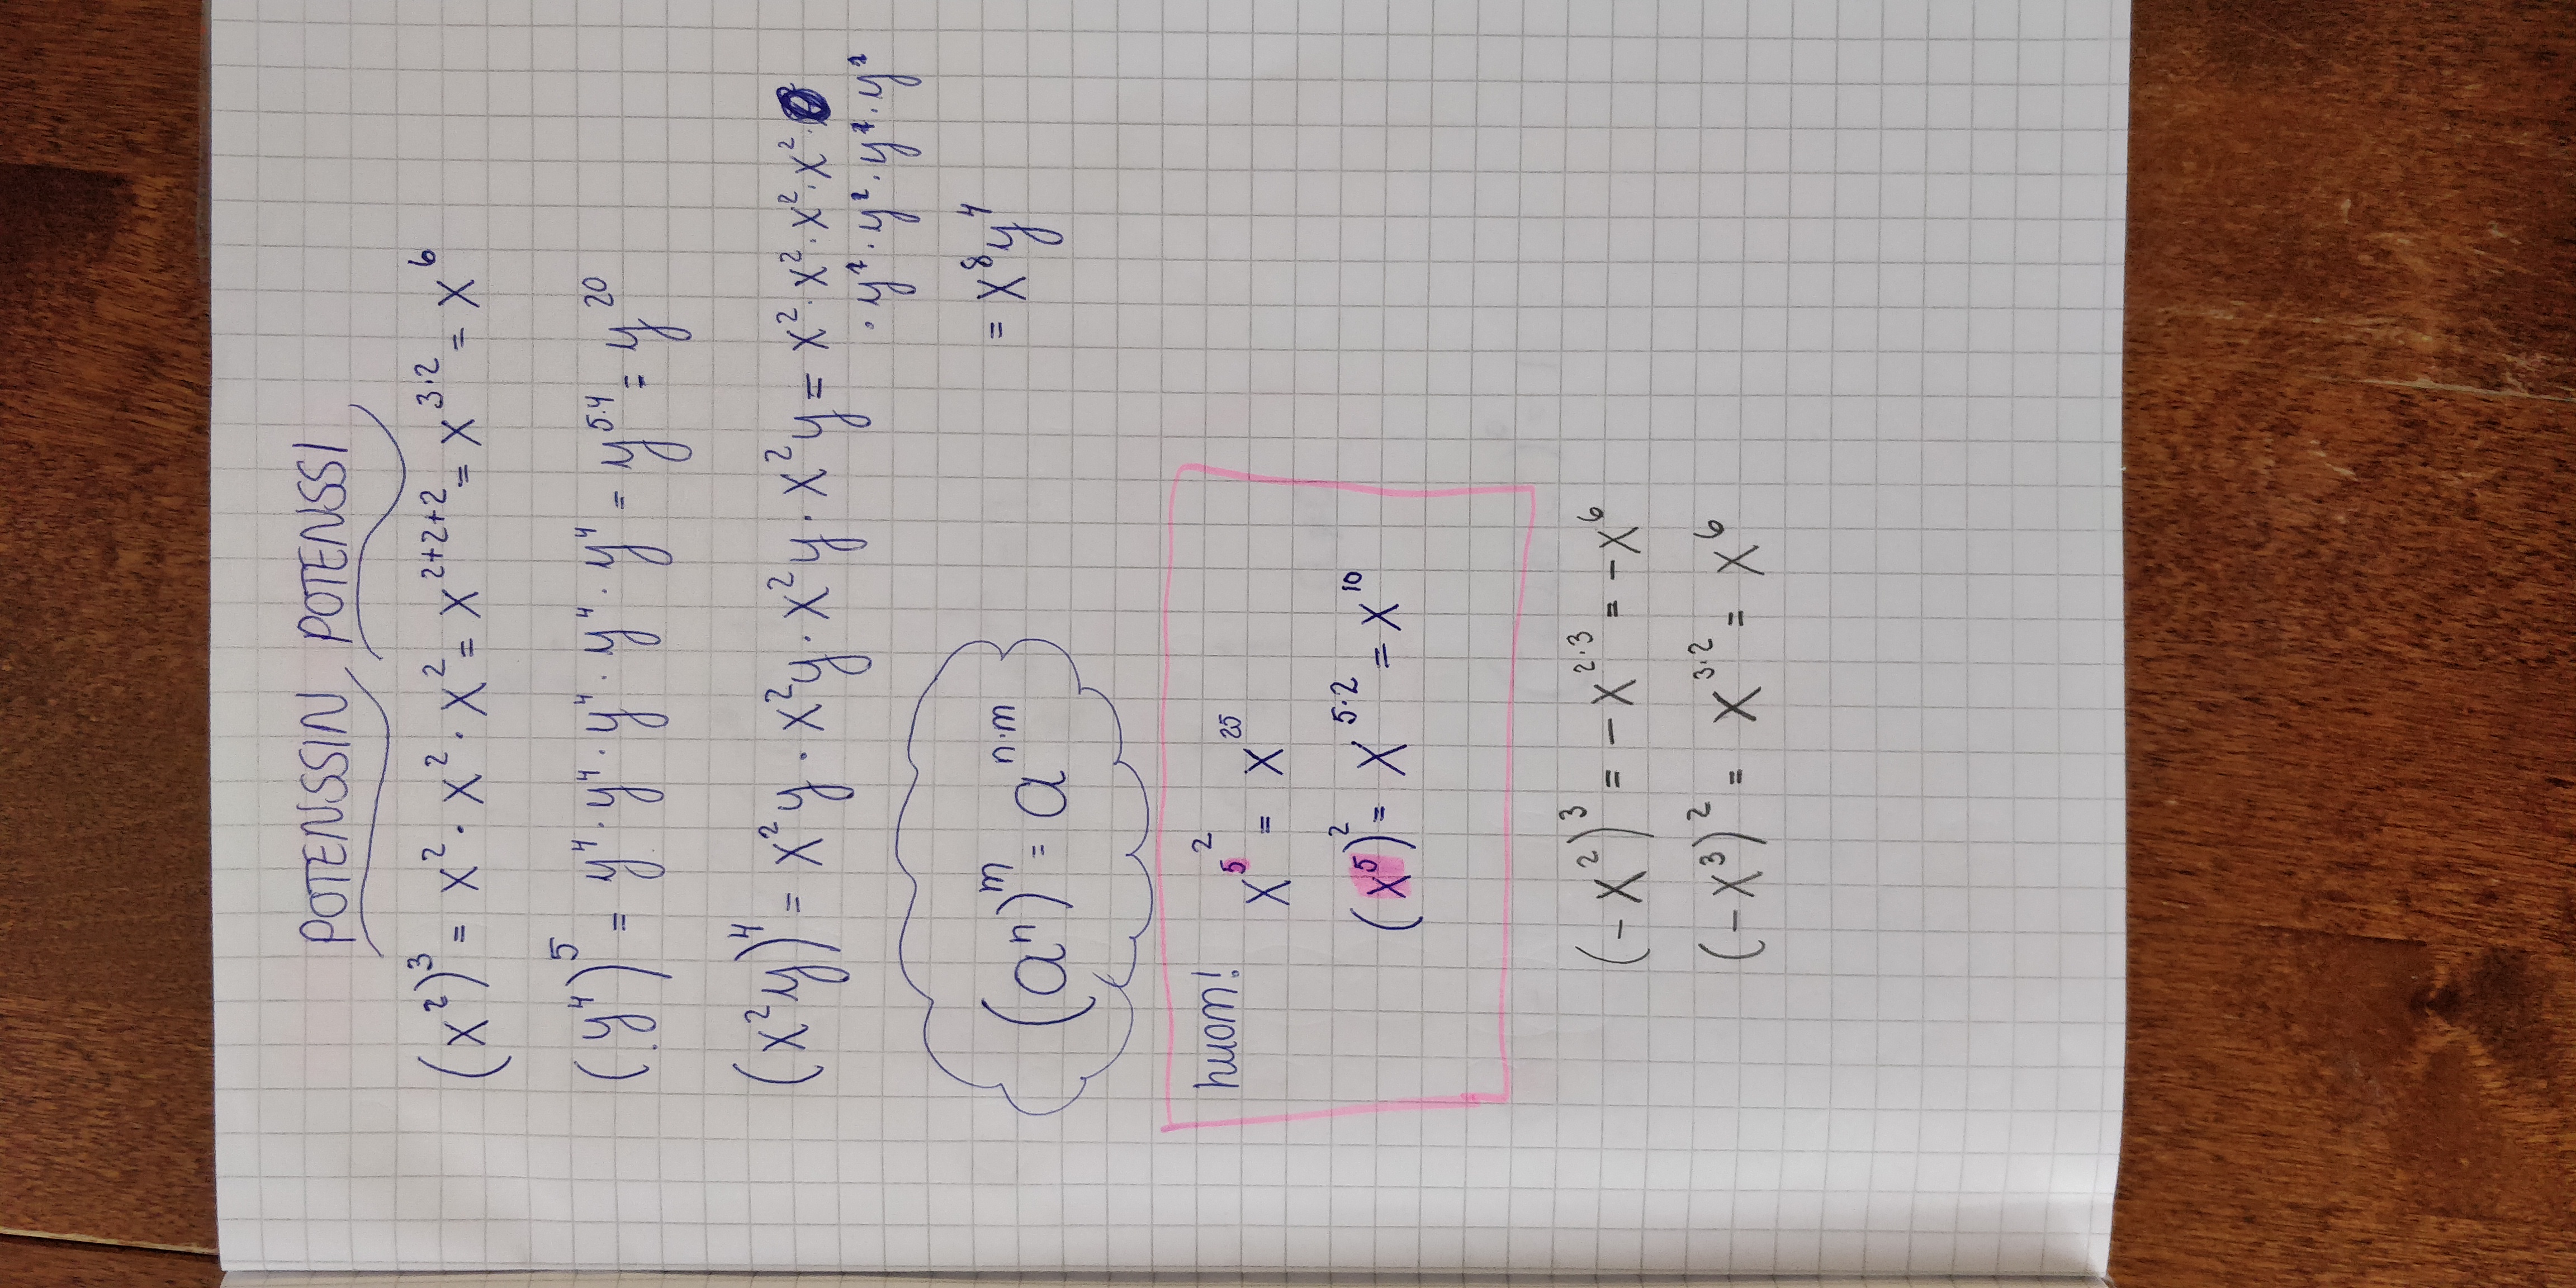 POTENSSIN POTENSSI
(x²)³ = x² · x² · x² = x²⁺²⁺² = x^{3·2} = x⁶
(y⁴)⁵ = y⁴ · y⁴ · y⁴ · y⁴ · y⁴ = y^{5·4} = y²⁰
(x²y)⁴ = x²y · x²y · x²y · x²y = x² · x² · x² · x²
· y¹ · y¹ · y¹ · y¹
= x⁸y⁴
(aⁿ)ᵐ = a^{n·m}
huom! x^{5^{2}} = x²⁵
(x⁵)² = x^{5·2} = x¹⁰
(-x²)³ = -x^{2·3} = -x⁶
(-x³)² = x^{3·2} = x⁶